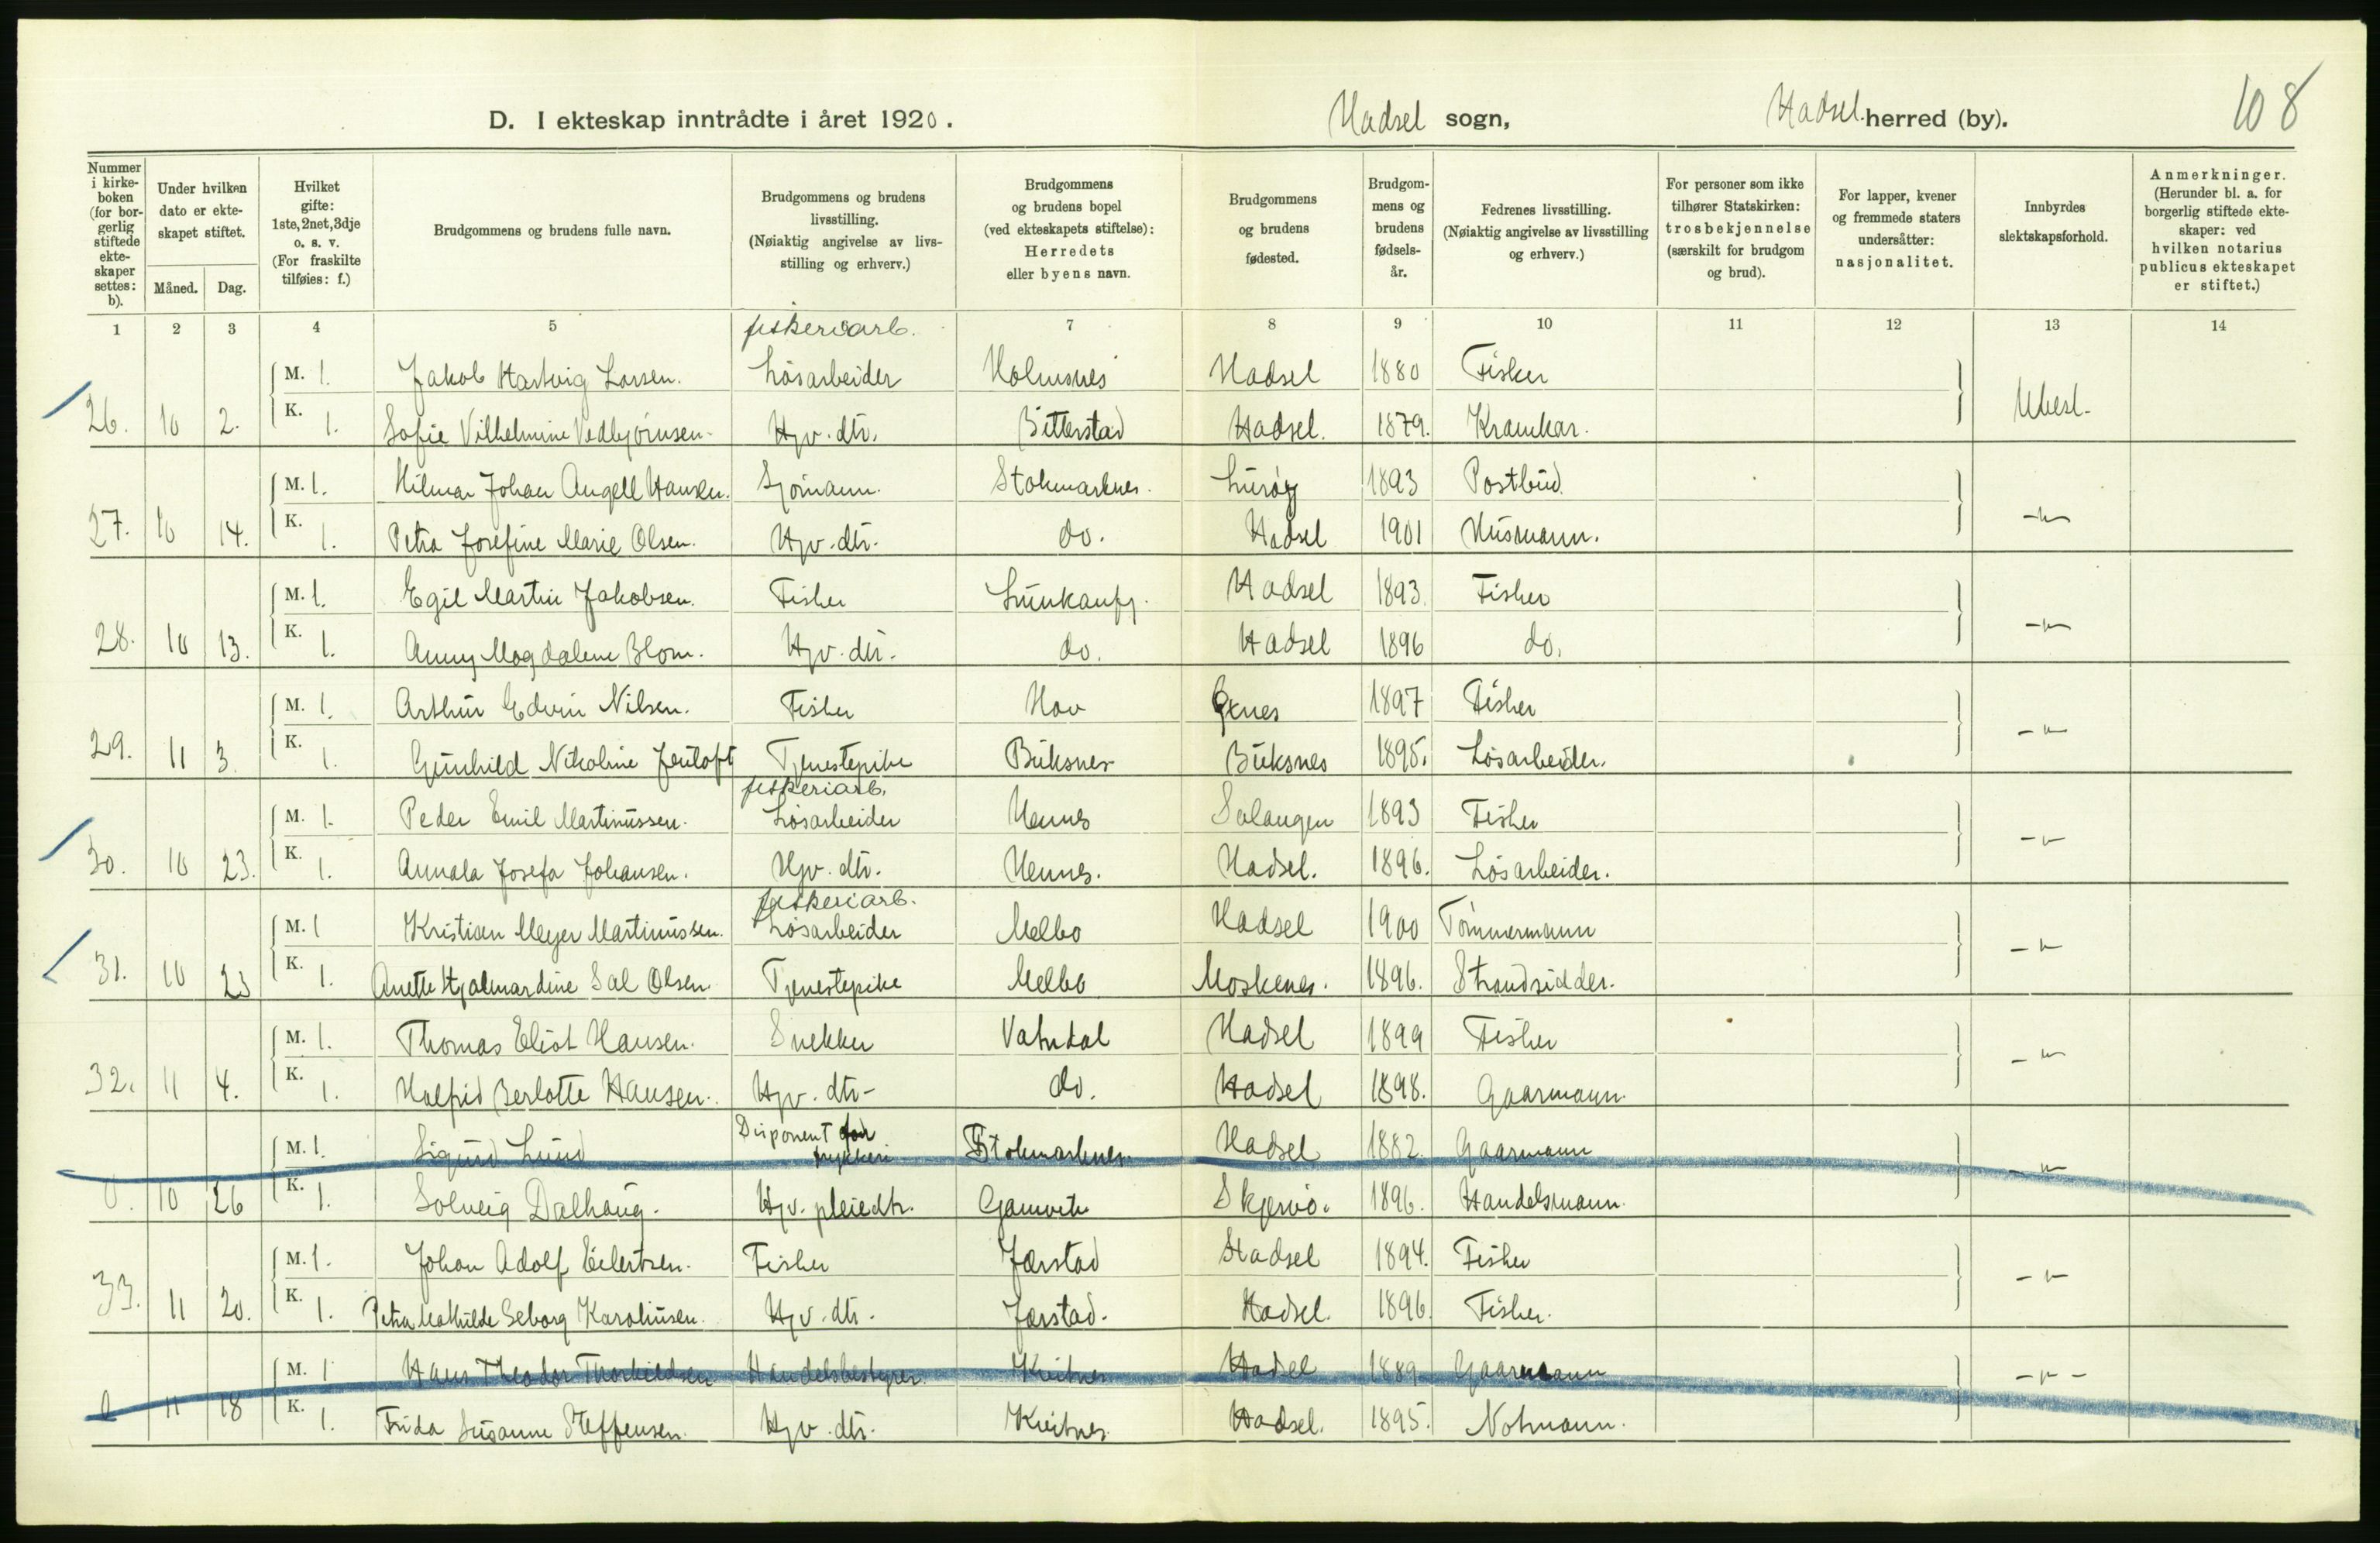 108
D. I ekteskap inntrådte i året 1920. Hadsel sogn, Hadsel herred (by).
Nummer i kirkeboken (for borgerlig stiftede ekteskaper settes: b).
Under hvilken dato er ekteskapet stiftet.
Måned. Dag.
Hvilket gifte: 1ste, 2net, 3dje o. s. v. (For fraskilte tilføies: f.)
Brudgommens og brudens fulle navn.
Brudgommens og brudens livsstilling. (Nøiaktig angivelse av livsstilling og erhverv.)
Brudgommens og brudens bopel (ved ekteskapets stiftelse): Herredets eller byens navn.
Brudgommens og brudens fødested.
Brudgommens og brudens fødselsår.
Fedrenes livsstilling. (Nøiaktig angivelse av livsstilling og erhverv.)
For personer som ikke tilhører Statskirken: trosbekjennelse (særskilt for brudgom og brud).
For lapper, kvener og fremmede staters undersåtter: nasjonalitet.
Innbyrdes slektskapsforhold.
Anmerkninger. (Herunder bl. a. for borgerlig stiftede ekteskaper: ved hvilken notarius publicus ekteskapet er stiftet.)
1 2 3 4 5 7 8 9 10 11 12 13 14
fiskeriarb.
M. 1. Jakob Hartvig Larsen. Løsarbeider Holmsnes Hadsel 1880 Fisker
26. 10 2. K. 1. Sofie Vilhelmine Vedbjørnsen. Hjv. dtr. Bitterstad Hadsel. 1879. Kramkar. Ubesl.
M. 1. Hilmar Johan Angell Hansen. Sjømann. Stokmarknes. Lurøy 1893 Postbud
27. 10 14. K. 1. Petra Josefine Marie Olsen. Hjv. dtr. do. Hadsel 1901 Husmann. -"-
M. 1. Egil Martin Jakobsen. Fisker Lunkanfj. Hadsel 1893. Fisker
28. 10 13. K. 1. Anny Magdalene Blom. Hjv. dtr. do. Hadsel 1896 do. -"-
M. 1. Arthur Edvin Nilsen. Fisker Hov Øksnes 1897 Fisker
29. 11 3. K. 1. Gunhild Nikoline Jentoft Tjenestepike Buksnes Buksnes 1895. Løsarbeider. -"-
fiskeriarb.
M. 1. Peder Emil Martinussen. Løsarbeider Hennes Salangen 1893 Fisker
30. 10 23. K. 1. Annala Josefa Johansen. Hjv. dtr. Hennes. Hadsel. 1896. Løsarbeider. -"-
fiskeriarb.
M. 1 Kristian Meyer Martinussen. Løsarbeider Melbo Hadsel 1900 Tømmermann
31. 10 23 K. 1. Anette Hjalmardine Sal Olsen Tjenestepike Melbo Moskenes. 1896. Strandsidder. -"-
M. 1. Thomas Eliot Hansen. Snekker Vatndal Hadsel 1899 Fisker
32. 11 4. K. 1. Halfrid Berlotte Hansen. Hjv. dtr. do. Hadsel 1898. Gaarmann. -"-
M. 1. Sigurd Lund Disponent for trykkeri Stokmarknes Hadsel 1882. Gaarmann
0. 10 26 K. 1. Solveig Dalhaug. Hjv. pleiedtr. Gamvik Skjervø. 1896. Handelsmann. -"-
M. 1. Johan Adolf Eilertsen. Fisker Jørstad Hadsel 1894. Fisker
33. 11 20. K. 1. Petra Mathilde Selborg Karoliussen. Hjv. dtr. Jørstad. Hadsel. 1896. Fisker. -"-
M. 1 Hans Theodor Thorkildsen. Handelsbestyrer. Kvitnes Hadsel 1889 Gaarmann
0 11 18 K. 1. Frida Susanne Steffensen. Hjv. dtr. Kvitnes Hadsel. 1895. Notmann. -"-